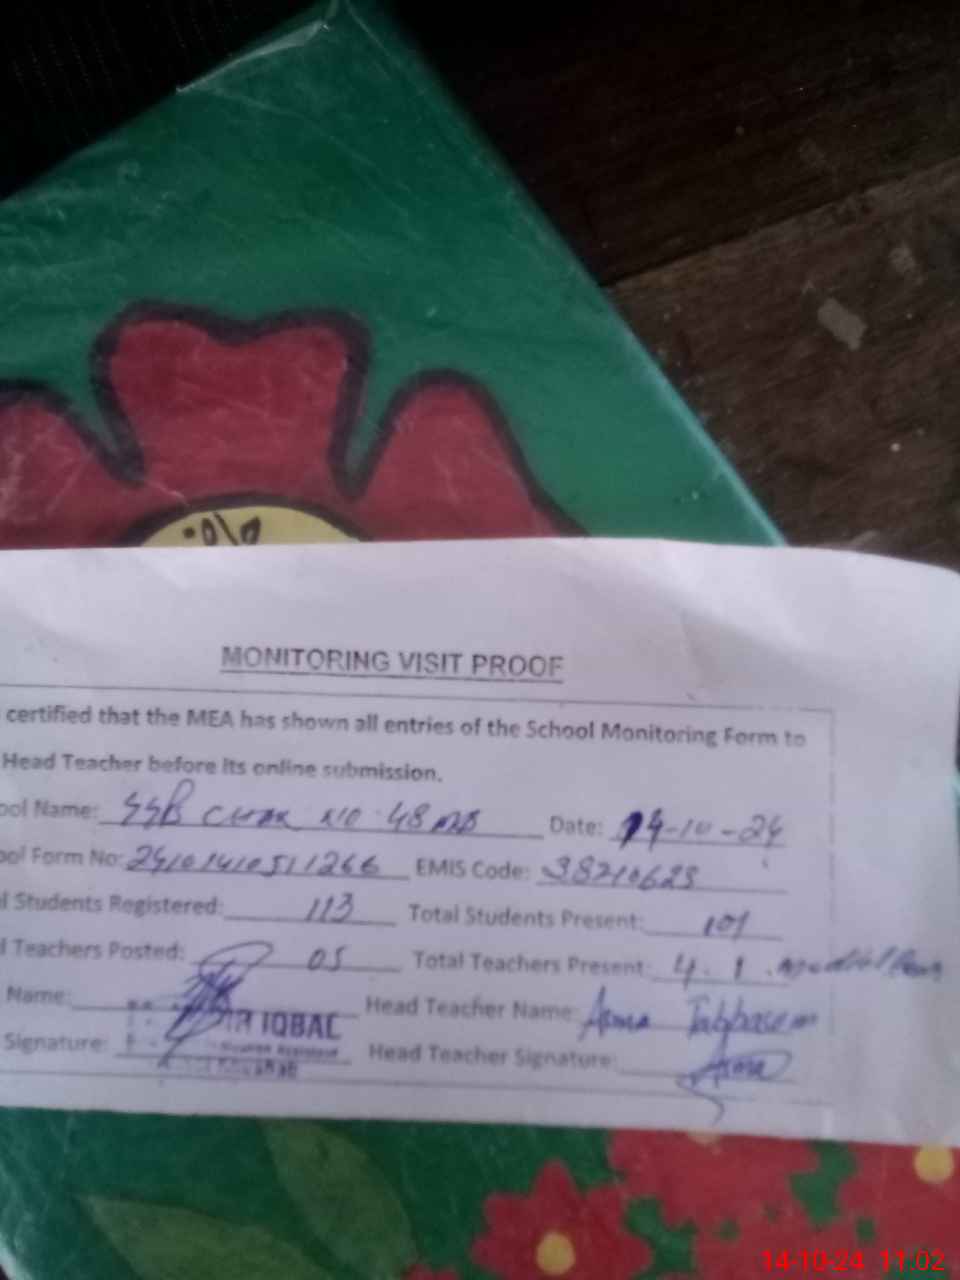 MONITORING VISIT PROOF
certified that the MEA has shown all entries of the School Monitoring Form to
Head Teacher before its online submission.
ool Name: CHAK NO. 48 MB Date: 14-10-24
ool Form No: 24101410511266 EMIS Code: 38210623
l Students Registered: 113 Total Students Present: 101
l Teachers Posted: 05 Total Teachers Present: 4. 1.
Name: Head Teacher Name: Asma Tabbasum
IQBAL
Signature: Head Teacher Signature: Asma
14-10-24 11:02